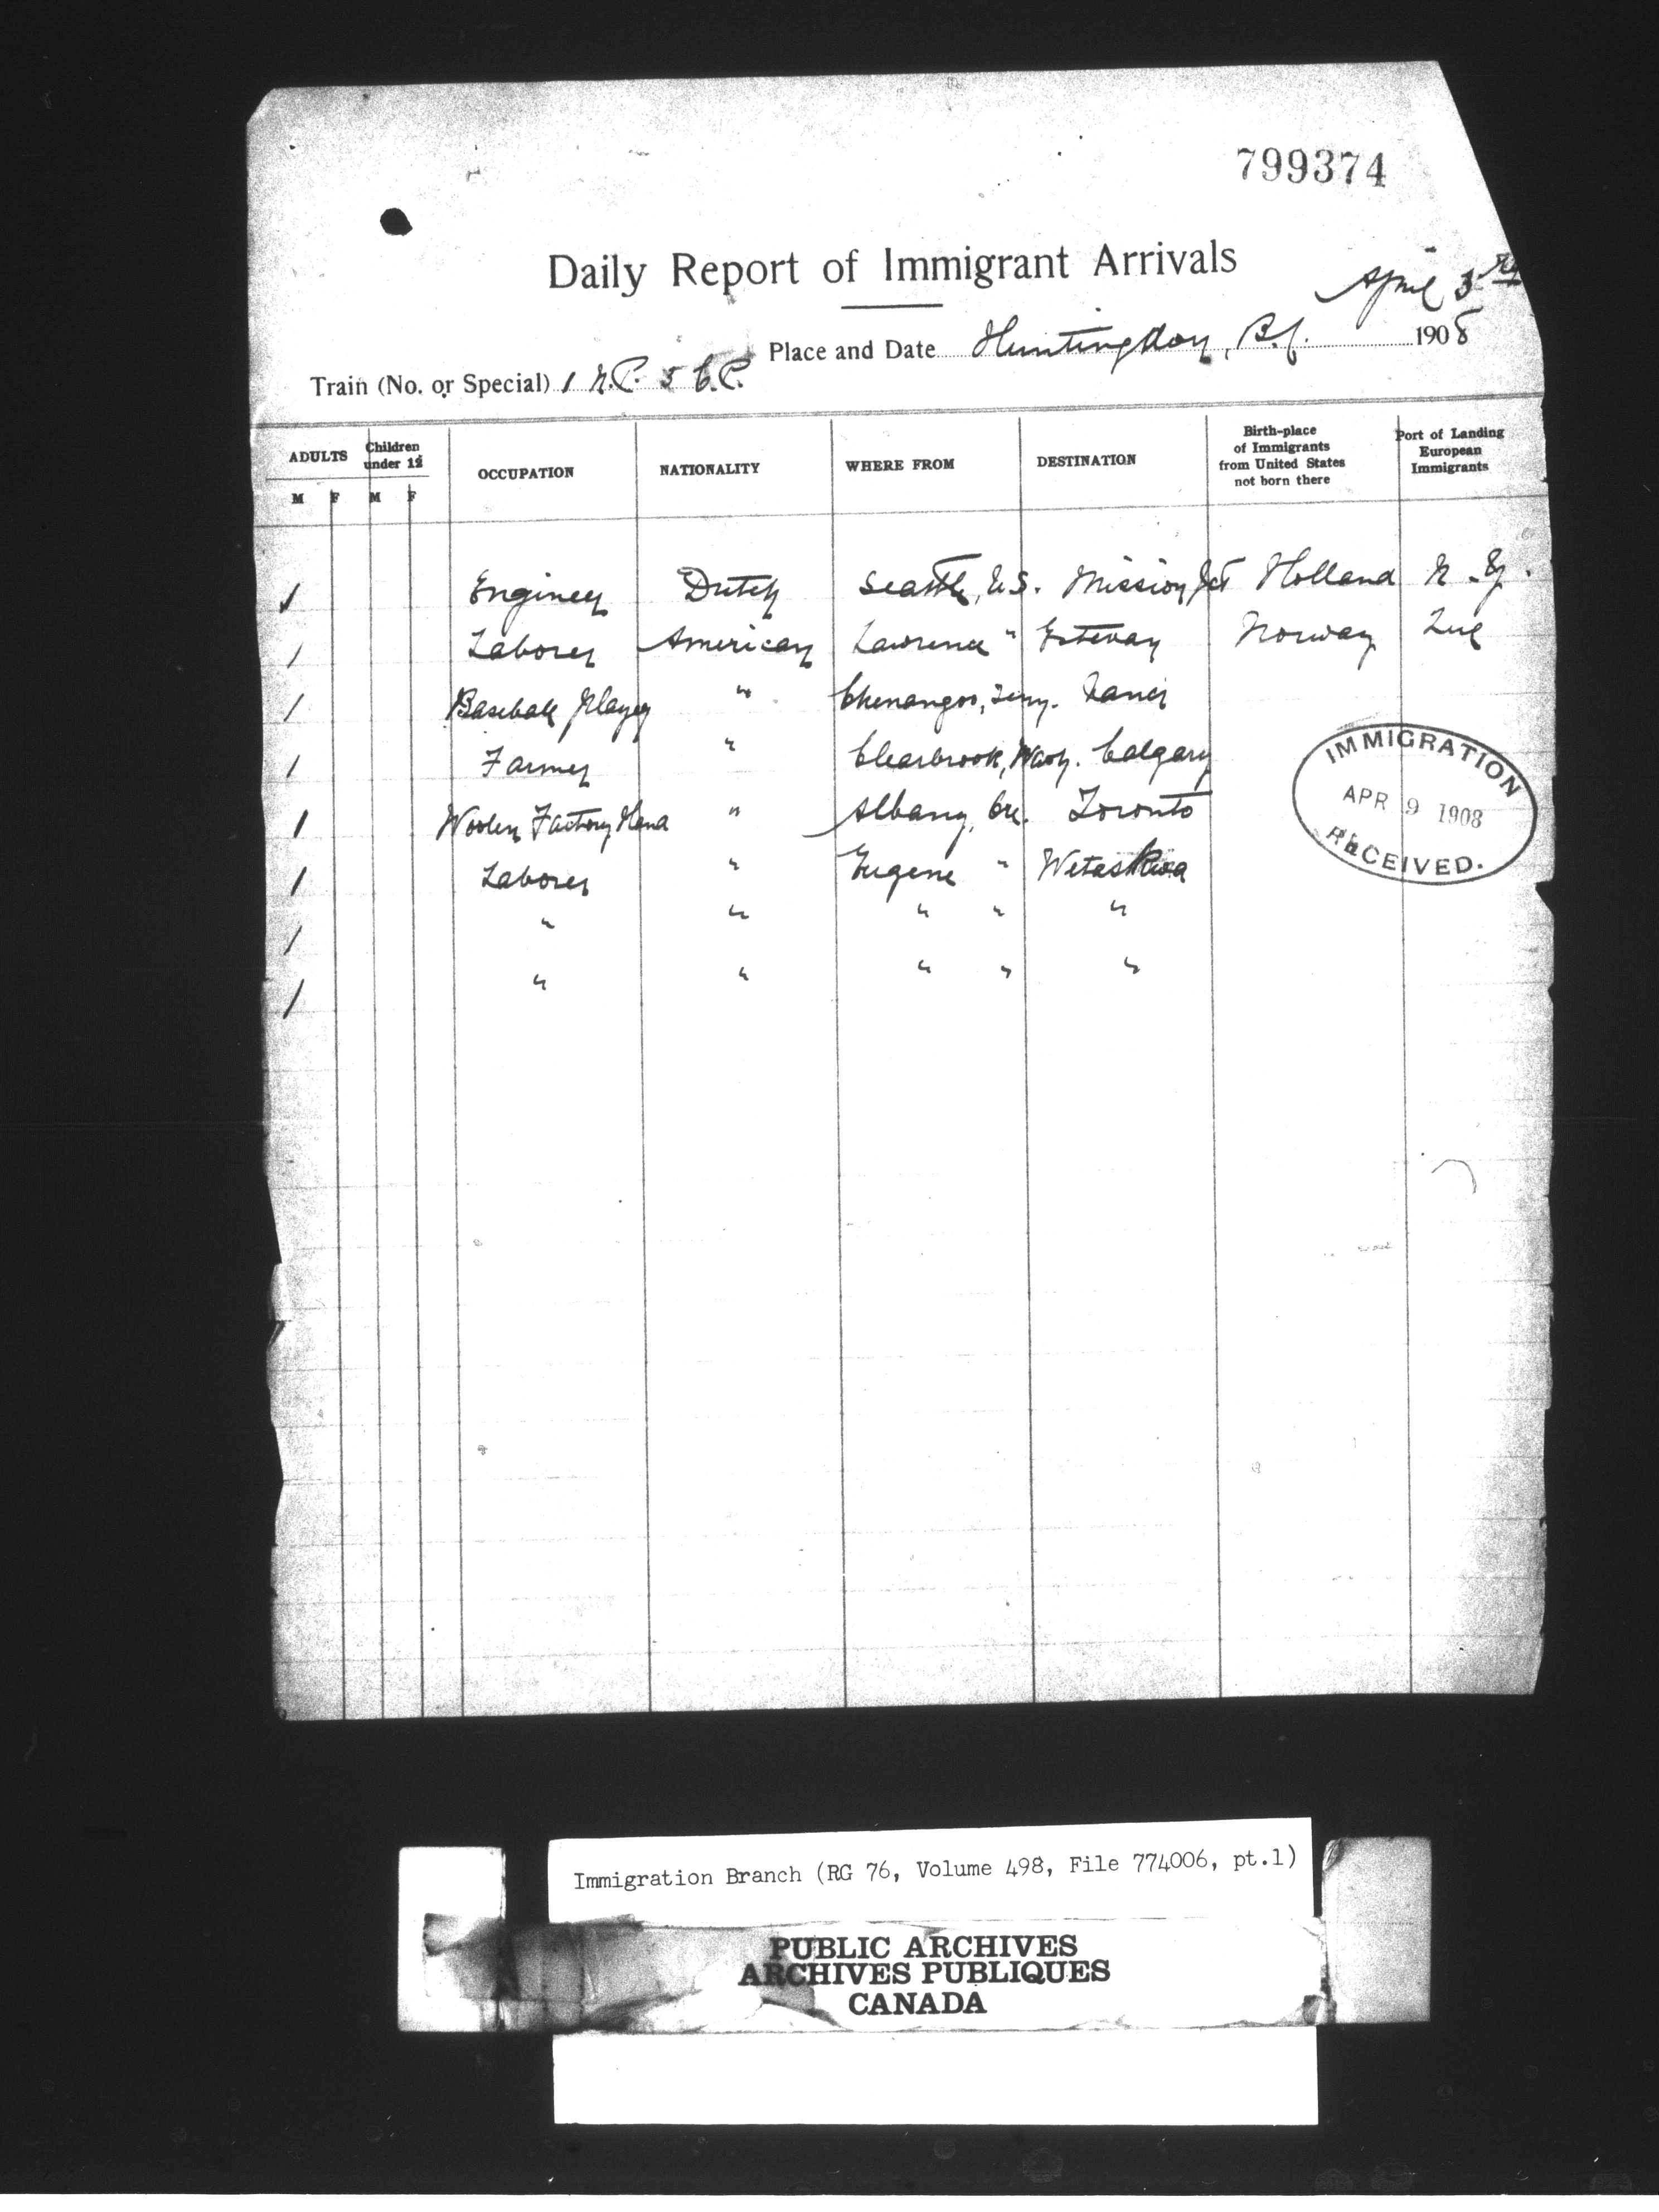 799374
Daily Report of Immigrant Arrivals
April 3rd
Place and Date Huntingdon, B.C. 1908
Train (No. or Special) 1 N.P. 5 C.P.
ADULTS Children under 12 OCCUPATION NATIONALITY WHERE FROM DESTINATION Birth-place of Immigrants from United States not born there Port of Landing European Immigrants
M F M F
1 Engineer Dutch Seattle, U.S. Mission Jct Holland N.Y.
1 Laborer American Lawrence " Estevan Norway Que
1 Baseball Player " Chenangos,
1 Farmer " Clearbrook, Wash. Calgary
1 Woolen Factory Hand " Albany, Ore. Toronto
1 Laborer " Eugene " Wetaskiwa
1 " " " " "
1 " " " " "
IMMIGRATION
APR 9 1908
RECEIVED.
Immigration Branch (RG 76, Volume 498, File 774006, pt.1)
PUBLIC ARCHIVES
ARCHIVES PUBLIQUES
CANADA